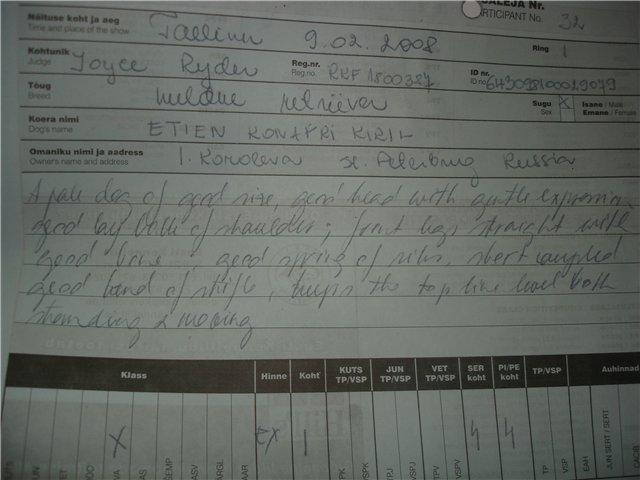 SALEJA Nr.
PARTICIPANT No. 32
Näituse koht ja aeg
Time and place of the show
Tallinn 9.02.2008
Ring 1
Kohtunik
Judge
Joyce Ryder
Reg.nr.
Reg.no.
RKF 1800387
ID nr.
ID no.
643098100029079
Tõug
Breed
kuldne retriiver
Sugu
Sex
X
Isane / Male
Emane / Female
Koera nimi
Dog's name
ETIEN KONAFRI KIRIL
Omaniku nimi ja aadress
Owner's name and address
I. Koroleva St. Peterburg Russia
A pale dog of good size, good head with gentle expression
good lay back of shoulder, front legs straight with
good bone, good spring of ribs, short coupled
good bend of stifle, keeps the top line level both
standing & moving
Klass
Hinne
Koht
KUTS
TP/VSP
JUN
TP/VSP
VET
TP/VSP
SER
koht
PI/PE
koht
TP/VSP
Auhinnad
X EX 1 4 4
PK
VSPK
TPJ
VSPJ
TPV
VSPV
TP
VSP
EAH
JUN SERT / SERT
CACIB